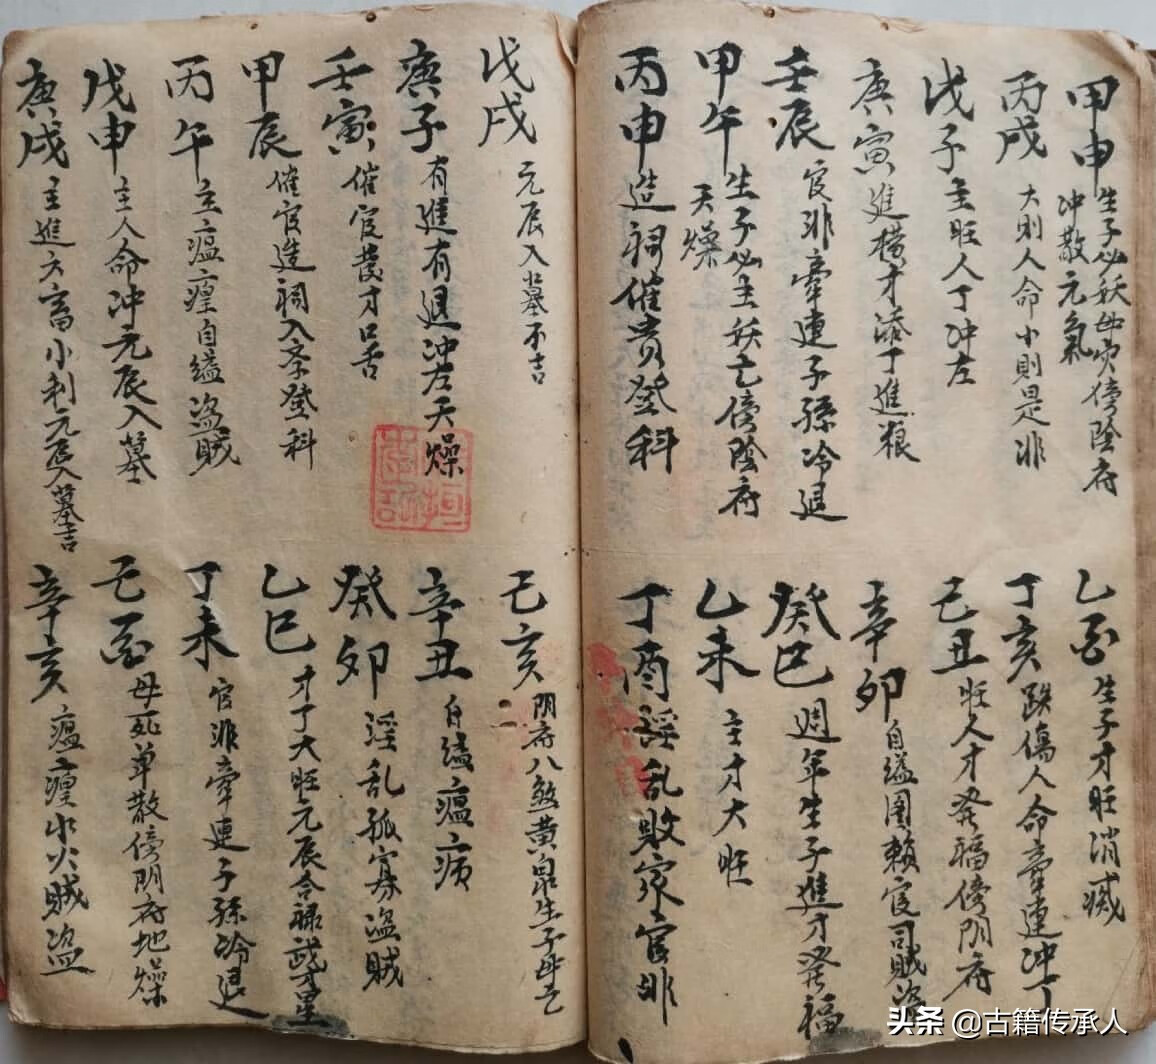 甲申 生子必妖母灾傍陰府
冲散元氣
丙戌 大則人命小則是非
戊子 主旺人丁冲左
庚寅 進横才添丁進粮
壬辰 官非牽連子孫冷退
甲午 生子必主妖亡傍陰府
天燥
丙申 造祠催贵登科
乙酉 生子才旺消滅
丁亥 跌傷人命牽連冲丁
己丑 旺人才発福傍阴府
辛卯 自縊圖賴官司賊盗
癸巳 週年生子進才発福
乙未 主才大旺
丁酉 淫乱敗家官非
戊戌 元辰入墓不吉
庚子 有進有退冲左天燥
壬寅 催官發才口舌
甲辰 催官造祠入泮登科
丙午 主瘟瘟自縊盗贼
戊申 主人命冲元辰入墓
庚戌 主進六畜小利元辰入墓吉
己亥 阴府八煞黄泉生子母亡
辛丑 自縊瘟病
癸卯 淫乱孤寡盗賊
乙巳 才丁大旺元辰合禄
丁未 官非牽連子孫冷退
己酉 母死单散傍阴府地燥
辛亥 瘟水火賊盗
头条 @古籍传承人